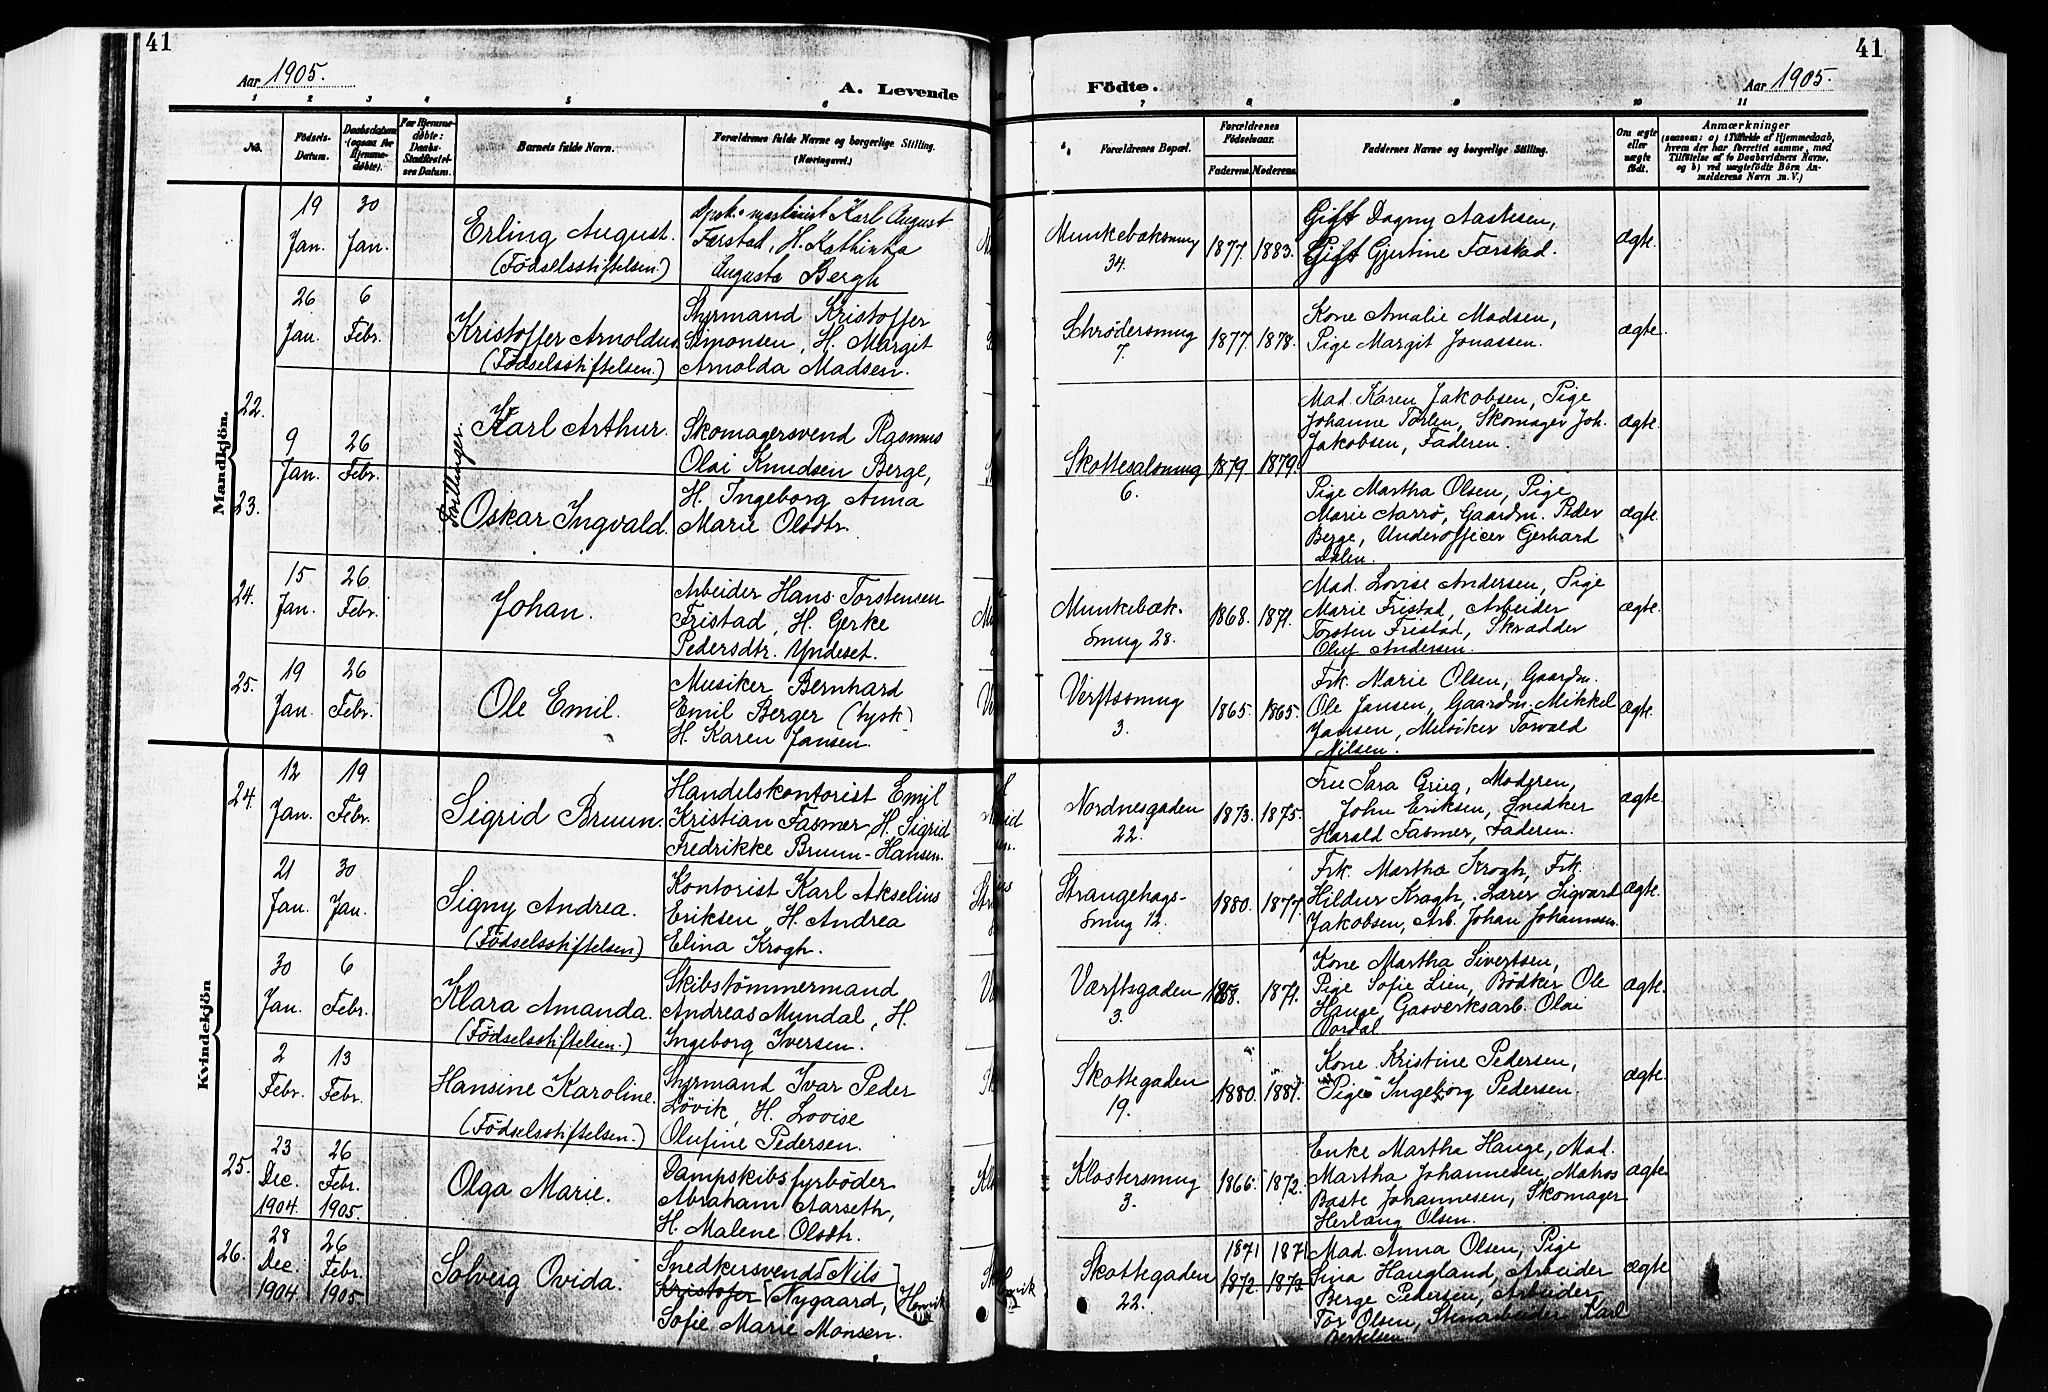 41
Aar 1905.
A. Levende
1 2 3 4 5 6
No.
Födsels-Datum.
Daabsdatum (ogsaa for Hjemmedöbte).
For Hjemmedöbte: Daabs-Stadfæstelses Datum.
Barnets fulde Navn.
Forældrenes fulde Navne og borgerlige Stilling.
(Næringsvei.)
Mandkjön.
19 Jan.
30 Jan.
Erling August.
(Födselsstiftelsen.)
Karl August
Farstad, H. Kathinka
Augusta Bergh
26 Jan.
6 Febr.
Kristoffer Arnoldus
(Födselsstiftelsen.)
Styrmand Kristoffer
Simonsen, H. Margit
Arnolda Madsen.
22.
9 Jan.
26 Febr.
Tvillinger.
Karl Arthur.
Skomagersvend Rasmus
Olai Knudsen Berge,
23.
Oskar Ingvald.
H. Ingeborg Anna
Marie Olsdtr.
24.
15 Jan.
26 Febr.
Johan.
Arbeider Hans Torstensen
Fristad, H. Gerke
Pedersdtr. Undeset.
25.
19 Jan.
26 Febr.
Ole Emil.
Musiker Bernhard
Emil Berger (tysk)
H. Karen Jansen.
Kvindekjön
24.
12 Jan.
19 Febr.
Sigrid Bruun.
Handelskontorist Emil
Kristian Fasmer, H. Sigrid
Fredrikke Bruun-Hansen.
21 Jan.
30 Jan.
Signy Andrea.
(Födselsstiftelsen)
Kontorist Karl Akselius
Eriksen, H. Andrea
Elina Krogh.
30 Jan.
6 Febr.
Klara Amanda.
(Födselsstiftelsen.)
Skibstömmermand
Andreas Mundal, H.
Ingeborg Iversen.
2 Febr.
13 Febr.
Hansine Karoline.
(Födselsstiftelsen.)
Styrmand Ivar Peder
Lövik, H. Lovise
Olufine Pedersen.
25.
23 Dec. 1904.
26 Febr. 1905.
Olga Marie.
Dampskibsfyrböder
Abraham Aarseth,
H. Malene Olsdtr.
26.
28 Dec. 1904
26 Febr. 1905.
Solveig Ovida.
Snedkersvend Nils
Kristofer Nygaard,
Sofie Marie Monsen.
41
Födte.
Aar 1905.
7 8 9 10 11
Forældrenes Bopæl.
Forældrenes Födselsaar.
Faderens. Moderens.
Faddernes Navne og borgerlige Stilling.
Om ægte eller uægte födt.
Anmærkninger
(saasom: a) i Tilfælde af Hjemmedaab,
hvem der har forrettet samme, med
Tilföielse af to Daabsvidners Navne,
og b) ved uægtefödte Börn Anmelderens Navn m. V.)
Munkebæksmug 34.
1877. 1883.
Gift Dagny Aastesen,
Gift Gjertine Farstad.
ægte.
Schrödersmug 7.
1877. 1878.
Kone Amalie Madsen,
Pige Margit Jonassen.
ægte.
Skottesalsmug 6.
1879 1879.
Mad. Karen Jakobsen, Pige
Johanne Torlen, Skomager Joh.
Jakobsen, Faderen.
ægte.
Pige Martha Olsen, Pige
Marie Aarrö, Gaardm. Peder
Berge, Underofficer Gerhard
Dalen.
ægte.
Munkebæksmug 28.
1868. 1871.
Mad. Lovise Andersen, Pige
Marie Fristad, Arbeider
Torsten Fristad, Skrædder
Oluf Andersen.
ægte.
Verftssmug 3.
1865. 1865.
Frk. Marie Olsen, Gaardm.
Ole Jansen, Gaardm. Mikkel
Jansen, Musiker Torvald
Nilsen.
ægte.
Nordnesgaden 22.
1873. 1875.
Fru Sara Grieg, Moderen,
John Eriksen, Snedker
Harald Fasmer, Faderen.
ægte.
Strangehagsmug 12.
1880. 1877.
Frk. Martha Krogh, Frk.
Hildur Krogh, Lærer Sigvard
Jakobsen, Arb. Johan Johannesen.
ægte.
Værftsgaden 3.
1871.
Kone Martha Sivertsen,
Pige Sofie Lien, Bödker Ole
Hauge, Gasverksarb. Olai
Vordal.
ægte.
Skottegaden 19.
1880. 1881.
Kone Kristine Pedersen,
Pige Ingeborg Pedersen.
ægte.
Klostersmug 3.
1866. 1872.
Enke Martha Hauge, Mad.
Martha Johannesen, Matros
Baste Johannesen, Skomager
Herlaug Olsen.
ægte
Skottegaden 22.
1871 1871
1872. 1873
Mad. Anna Olsen, Pige
Sina Haugland, Arbeider
Berge Pedersen, Arbeider
Tor Olsen, Stenarbeider Karl
Bertelsen.
ægte